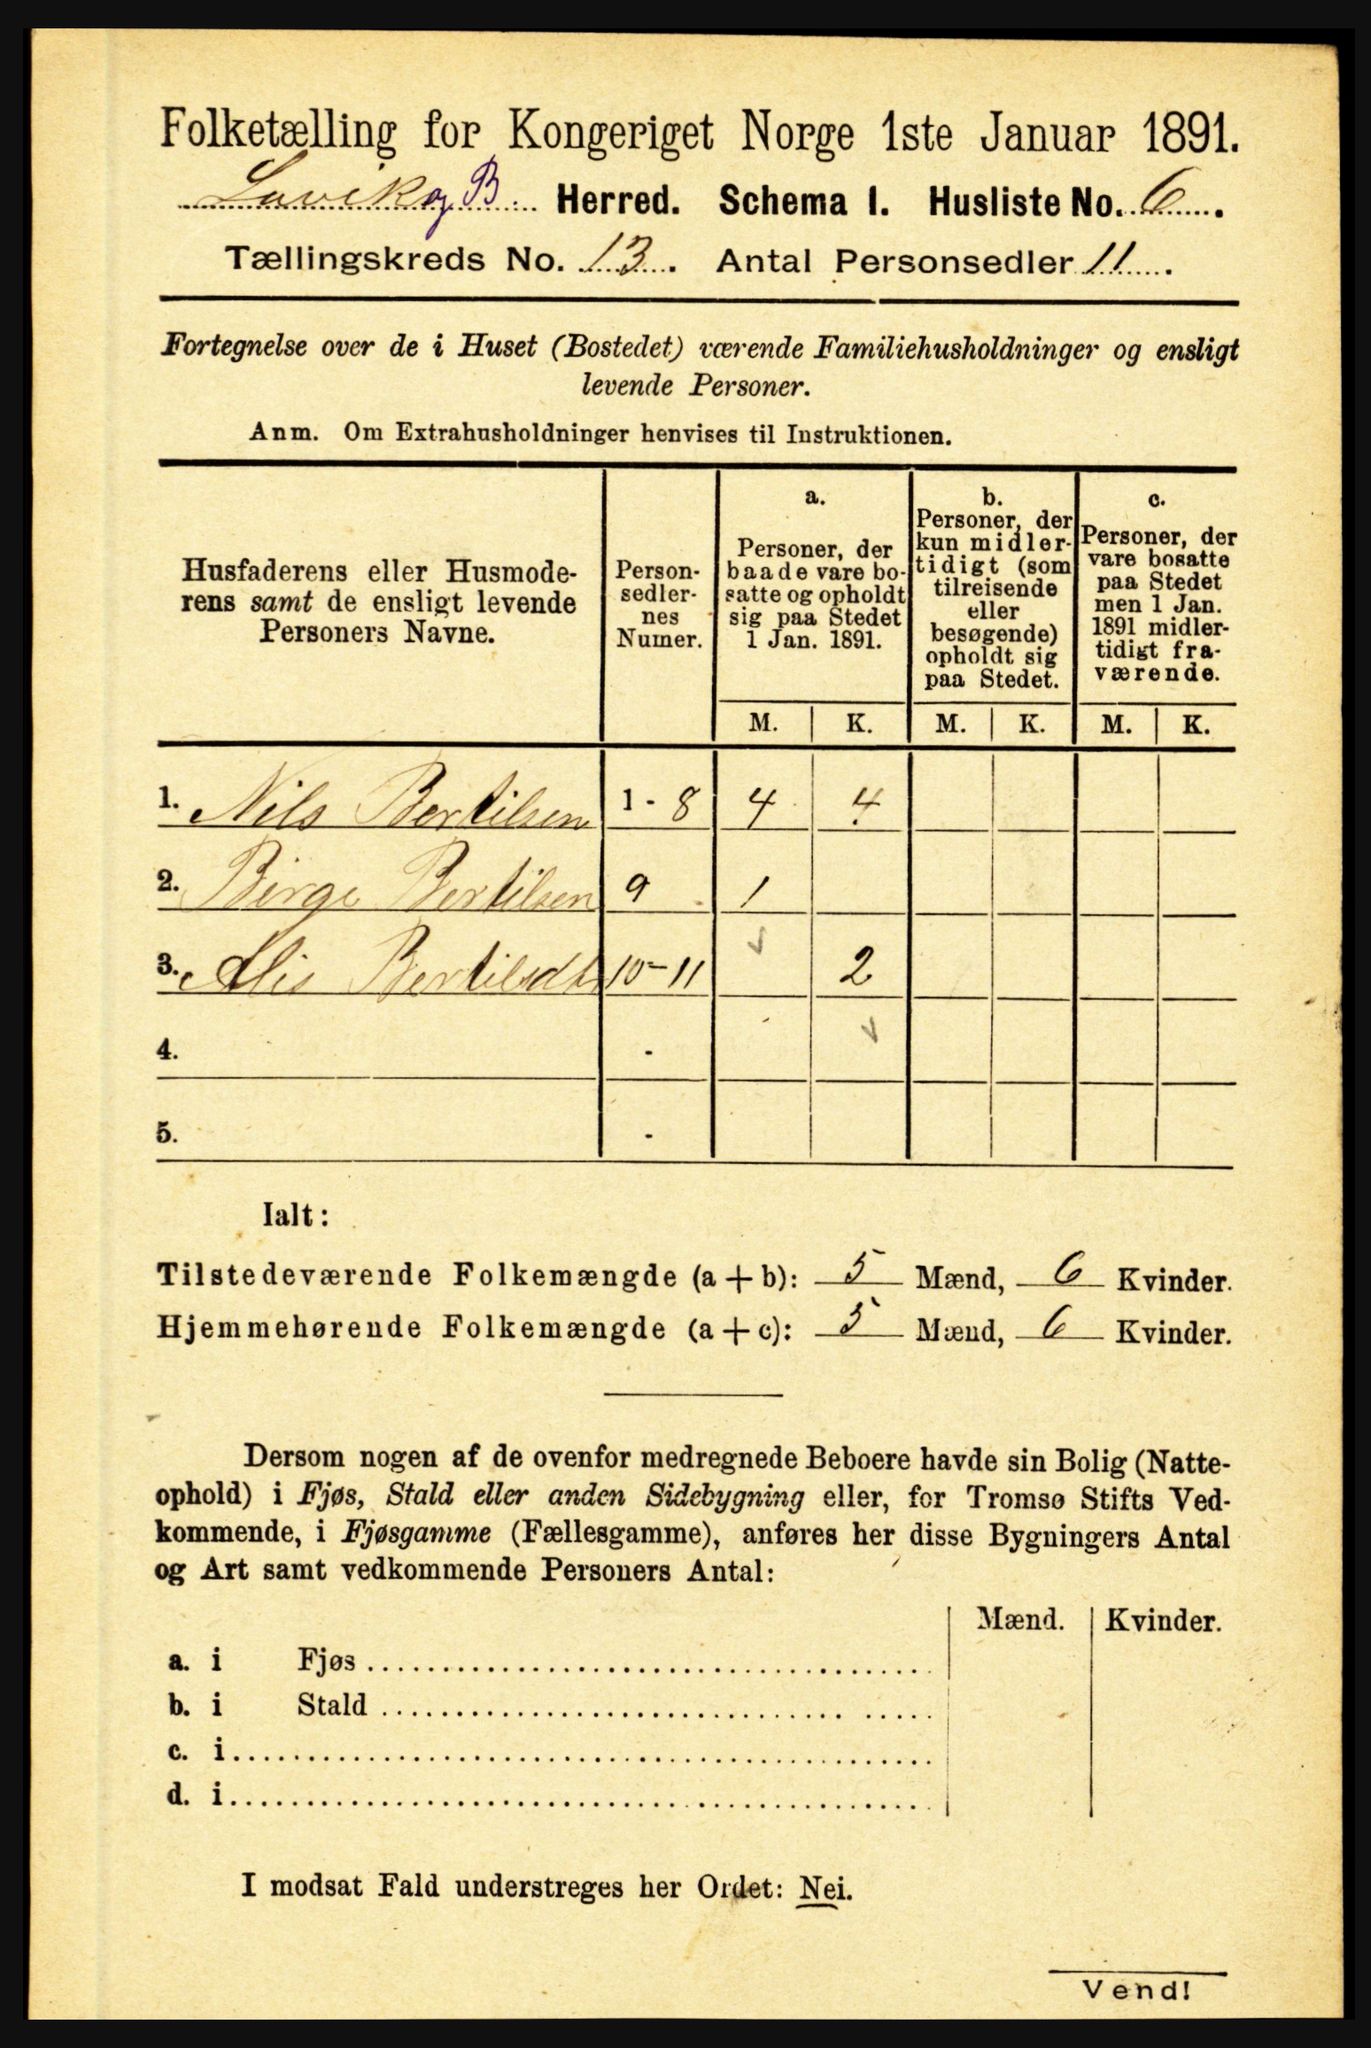 Folketælling for Kongeriget Norge 1ste Januar 1891.
Lavik og B. Herred. Schema I. Husliste No. 6.
Tællingskreds No. 13. Antal Personsedler 11.
Fortegnelse over de i Huset (Bostedet) værende Familiehusholdninger og ensligt
levende Personer.
Anm. Om Extrahusholdninger henvises til Instruktionen.
Husfaderens eller Husmode-
rens samt de ensligt levende
Personers Navne.
Person-
sedler-
nes
Numer.
a.
Personer, der
baade vare bo-
satte og opholdt
sig paa Stedet
1 Jan. 1891.
b.
Personer, der
kun midler-
tidigt (som
tilreisende
eller
besøgende)
opholdt sig
paa Stedet.
c.
Personer, der
vare bosatte
paa Stedet
men 1 Jan.
1891 midler-
tidigt fra-
værende.
M. K. M. K. M. K.
1. Nils Bertilsen 1 - 8 4 4
2. Birge Bertilsen 9 1
3. Alis Bertilsdt. 10-11 2
4. -
5. -
Ialt:
Tilstedeværende Folkemængde (a + b): 5 Mænd, 6 Kvinder.
Hjemmehørende Folkemængde (a + c): 5 Mænd, 6 Kvinder.
Dersom nogen af de ovenfor medregnede Beboere havde sin Bolig (Natte-
ophold) i Fjøs, Stald eller anden Sidebygning eller, for Tromsø Stifts Ved-
kommende, i Fjøsgamme (Fællesgamme), anføres her disse Bygningers Antal
og Art samt vedkommende Personers Antal:
Mænd. Kvinder.
a. i Fjøs
b. i Stald
c. i
d. i
I modsat Fald understreges her Ordet: Nei.
Vend!